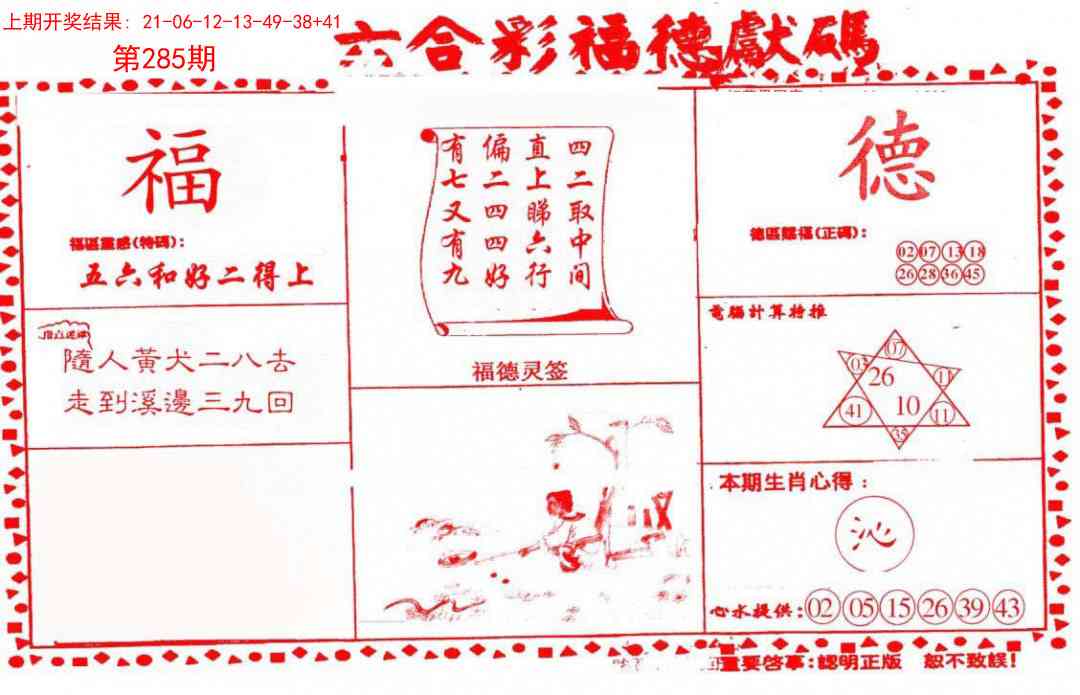 上期开奖结果：21-06-12-13-49-38+41
第285期
六合彩福德獻碼
福
福區靈感(特碼):
五六和好二得上
隨人黃犬二八去
走到溪邊三九回
四二取中间
直上睇六行
偏二四四好
有七又有九
福德灵签
德
德區賜福(正碼):
02 07 13 18
26 28 36 45
電腦計算特推
07
03 26 11
41 10 11
35
本期生肖心得：
沁
心水提供: 02 05 15 26 39 43
重要啓事:認明正版 恕不致誤!